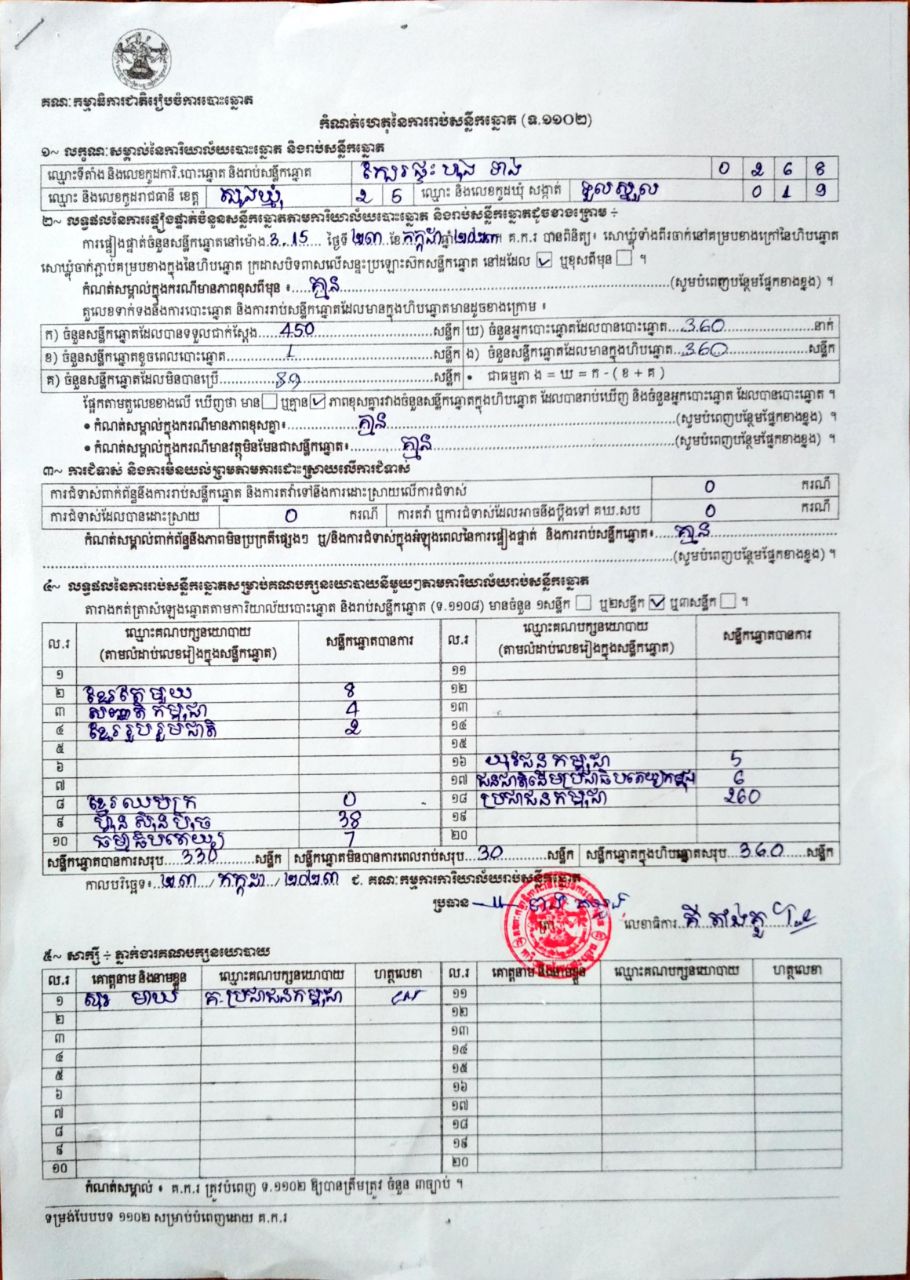 គណៈកម្មាធិការជាតិរៀបចំការបោះឆ្នោត
កំណត់ហេតុនៃការរាប់សន្លឹកឆ្នោត (ទ.១១០២)
១~ លក្ខណៈសម្គាល់នៃការិយាល័យបោះឆ្នោត និងរាប់សន្លឹកឆ្នោត
ឈ្មោះទីតាំង និងលេខកូដការិ.បោះឆ្នោត និងរាប់សន្លឹកឆ្នោត ផ្ទះ ហុង 0 2 6 8
ឈ្មោះ និងលេខកូដរាជធានី ខេត្ត ត្បូងឃ្មុំ 2 5 ឈ្មោះ និងលេខកូដឃុំ សង្កាត់ ទួលស្នួល 0 1 9
២~ លទ្ធផលនៃការផ្ទៀងផ្ទាត់ចំនួនសន្លឹកឆ្នោតតាមការិយាល័យបោះឆ្នោត និងរាប់សន្លឹកឆ្នោតដូចខាងក្រោម ÷
ការផ្ទៀងផ្ទាត់ចំនួនសន្លឹកឆ្នោតនៅម៉ោង 3:15 ថ្ងៃទី ២៣ ខែ កក្កដា ឆ្នាំ ២០២៣។ គ.ក.រ បានពិនិត្យ៖ សោឃ្លុំទាំងពីរចាក់នៅគម្របខាងក្រៅនៃហិបឆ្នោត
សោឃ្លុំចាក់ភ្ជាប់គម្របខាងក្នុងនៃហិបឆ្នោត ក្រដាសបិទពាសលើសន្ទះប្រឡោះស៊កសន្លឹកឆ្នោត នៅដដែល ✓ ឬខុសពីមុន ។
កំណត់សម្គាល់ក្នុងករណីមានភាពខុសពីមុន ៖ គ្មាន (សូមបំពេញបន្ថែមផ្នែកខាងខ្នង) ។
តួលេខទាក់ទងនឹងការបោះឆ្នោត និងការរាប់សន្លឹកឆ្នោតដែលមានក្នុងហិបឆ្នោតមានដូចខាងក្រោម ៖
ក) ចំនួនសន្លឹកឆ្នោតដែលបានទទួលជាក់ស្តែង 450 សន្លឹក ឃ) ចំនួនអ្នកបោះឆ្នោតដែលបានបោះឆ្នោត 360 នាក់
ខ) ចំនួនសន្លឹកឆ្នោតខូចពេលបោះឆ្នោត 1 សន្លឹក ង) ចំនួនសន្លឹកឆ្នោតដែលមានក្នុងហិបឆ្នោត 360 សន្លឹក
គ) ចំនួនសន្លឹកឆ្នោតដែលមិនបានប្រើ 89 សន្លឹក • ជាធម្មតា ង = ឃ = ក - ( ខ + គ )
ផ្អែកតាមតួលេខខាងលើ ឃើញថា មាន ឬគ្មាន ✓ ភាពខុសគ្នារវាងចំនួនសន្លឹកឆ្នោតក្នុងហិបឆ្នោត ដែលបានរាប់ឃើញ និងចំនួនអ្នកបោះឆ្នោត ដែលបានបោះឆ្នោត ។
• កំណត់សម្គាល់ក្នុងករណីមានភាពខុសគ្នា៖ គ្មាន (សូមបំពេញបន្ថែមផ្នែកខាងខ្នង) ។
• កំណត់សម្គាល់ក្នុងករណីមានវត្ថុមិនមែនជាសន្លឹកឆ្នោត៖ គ្មាន (សូមបំពេញបន្ថែមផ្នែកខាងខ្នង) ។
៣~ ការជំទាស់ និងការមិនយល់ព្រមតាមការដោះស្រាយលើការជំទាស់
ការជំទាស់ពាក់ព័ន្ធនឹងការរាប់សន្លឹកឆ្នោត និងការតវ៉ាទៅនឹងការដោះស្រាយលើការជំទាស់ 0 ករណី
ការជំទាស់ដែលបានដោះស្រាយ 0 ករណី ការតវ៉ា ឬការជំទាស់ដែលអាចនឹងប្តឹងទៅ គឃ.សប 0 ករណី
កំណត់សម្គាល់ពាក់ព័ន្ធនឹងភាពមិនប្រក្រតីផ្សេងៗ ឬ/និងការជំទាស់ក្នុងអំឡុងពេលនៃការផ្ទៀងផ្ទាត់ និងការរាប់សន្លឹកឆ្នោត៖ គ្មាន
(សូមបំពេញបន្ថែមផ្នែកខាងខ្នង) ។
៤~ លទ្ធផលនៃការរាប់សន្លឹកឆ្នោតសម្រាប់គណបក្សនយោបាយនីមួយៗតាមការិយាល័យរាប់សន្លឹកឆ្នោត
តារាងកត់ត្រាសំឡេងឆ្នោតតាមការិយាល័យបោះឆ្នោត និងរាប់សន្លឹកឆ្នោត (ទ.១១០៨) មានចំនួន ១សន្លឹក ឬ២សន្លឹក ✓ ឬ៣សន្លឹក ។
ល.រ ឈ្មោះគណបក្សនយោបាយ (តាមលំដាប់លេខរៀងក្នុងសន្លឹកឆ្នោត) សន្លឹកឆ្នោតបានការ ល.រ ឈ្មោះគណបក្សនយោបាយ (តាមលំដាប់លេខរៀងក្នុងសន្លឹកឆ្នោត) សន្លឹកឆ្នោតបានការ
១ ១១
២ ខ្មែរតែមួយ 8 ១២
៣ សញ្ជាតិកម្ពុជា 4 ១៣
៤ ខ្មែររួបរួមជាតិ 2 ១៤
៥ ១៥
៦ ១៦ យុវជនកម្ពុជា 5
៧ ១៧ ជនជាតិដើមប្រជាធិបតេយ្យកម្ពុជា 6
៨ ខ្មែរឈប់ក្រ 0 ១៨ ប្រជាជនកម្ពុជា 260
៩ ហ៊្វុនស៊ិនប៉ិច 38 ១៩
១០ ធម្មាធិបតេយ្យ 7 ២០
សន្លឹកឆ្នោតបានការសរុប 330 សន្លឹក សន្លឹកឆ្នោតមិនបានការពេលរាប់សរុប 30 សន្លឹក សន្លឹកឆ្នោតក្នុងហិបឆ្នោតសរុប 360 សន្លឹក
កាលបរិច្ឆេទ៖ ២៣ / កក្កដា / ២០២៣ ជ. គណៈកម្មការការិយាល័យរាប់សន្លឹកឆ្នោត
ប្រធាន លេខាធិការ
៥~ សាក្សី ÷ ភ្នាក់ងារគណបក្សនយោបាយ
ល.រ គោត្តនាម និងនាមខ្លួន ឈ្មោះគណបក្សនយោបាយ ហត្ថលេខា ល.រ គោត្តនាម និងនាមខ្លួន ឈ្មោះគណបក្សនយោបាយ ហត្ថលេខា
១ គ.ប្រជាជនកម្ពុជា ១១
២ ១២
៣ ១៣
៤ ១៤
៥ ១៥
៦ ១៦
៧ ១៧
៨ ១៨
៩ ១៩
១០ ២០
កំណត់សម្គាល់ ៖ គ.ក.រ ត្រូវបំពេញ ទ.១១០២ ឱ្យបានត្រឹមត្រូវ ចំនួន ៣ច្បាប់ ។
ទម្រង់បែបបទ ១១០២ សម្រាប់បំពេញដោយ គ.ក.រ